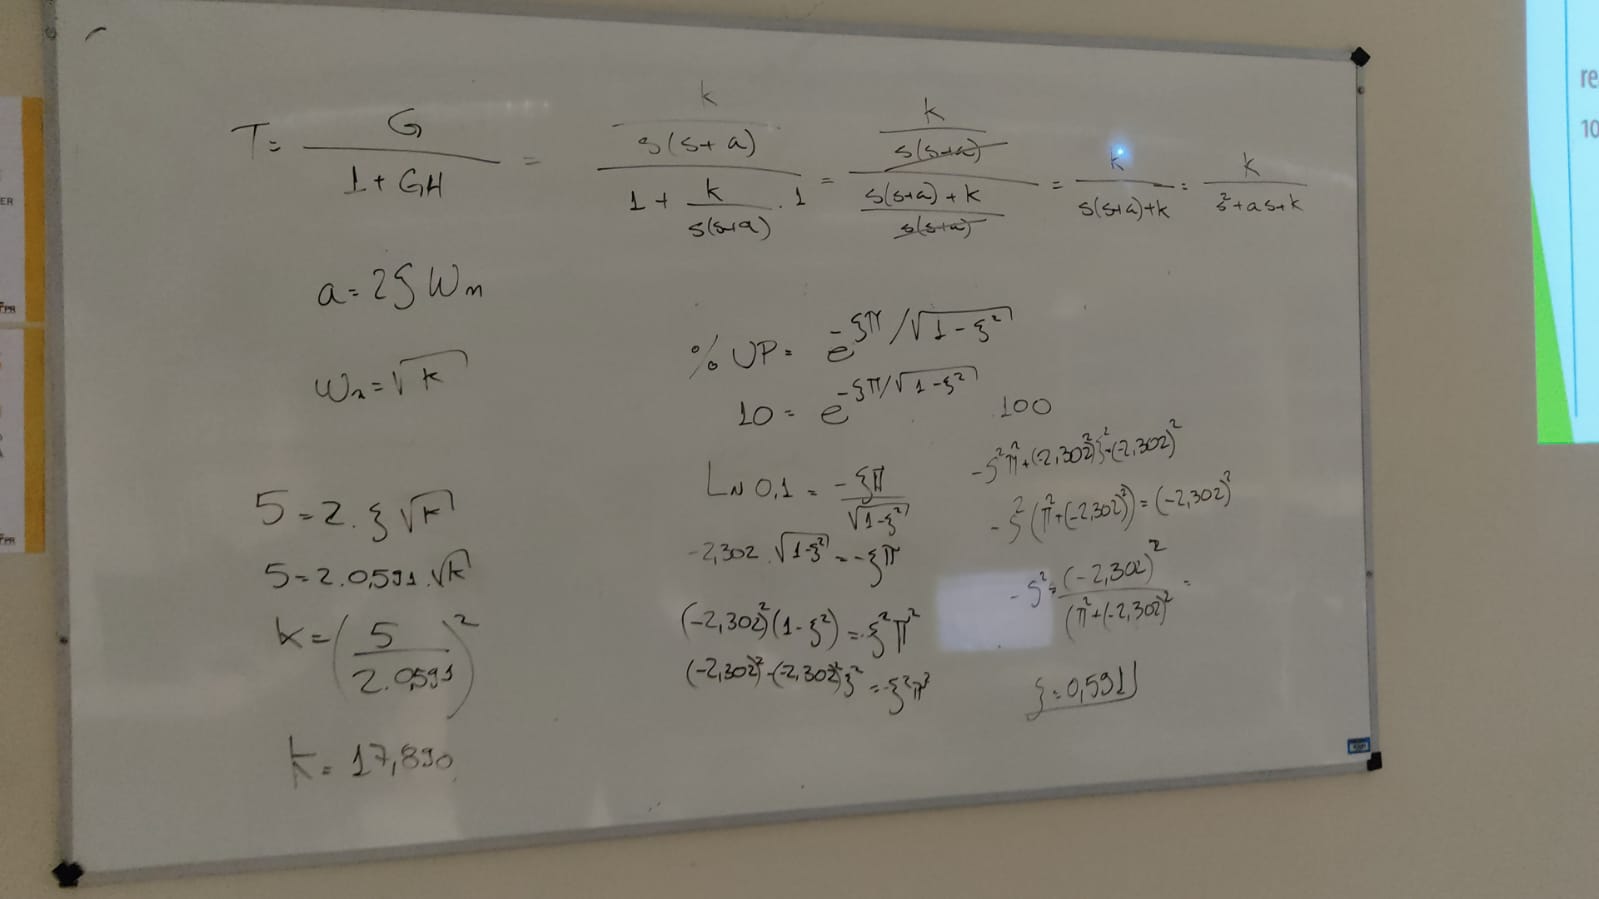 T = G / 1 + GH = k / s(s+a) / 1 + k / s(s+a) . 1 = k / s(s+a) / s(s+a) + k / s(s+a) = k / s(s+a)+k = k / s²+as+k
a = 2ξ Wn
Wn = √k
5 = 2 . ξ √k
5 = 2 . 0,591 . √k
k = (5 / 2 . 0,591)²
k = 17,890
% UP = e^-ξπ/√1-ξ²
10 = e^-ξπ/√1-ξ² 100
LN 0,1 = -ξπ / √1-ξ²
-2,302 . √1-ξ² = -ξπ
(-2,302)²(1-ξ²) = -ξ²π²
(-2,302)²-(-2,302)²ξ² = -ξ²π²
-ξ²π²+(-2,302)²ξ²=(-2,302)²
-ξ²(π²+(-2,302)²) = (-2,302)²
-ξ² = (-2,302)² / (π²+(-2,302)² =
ξ = 0,591
re
10
ER
FPR
FPR